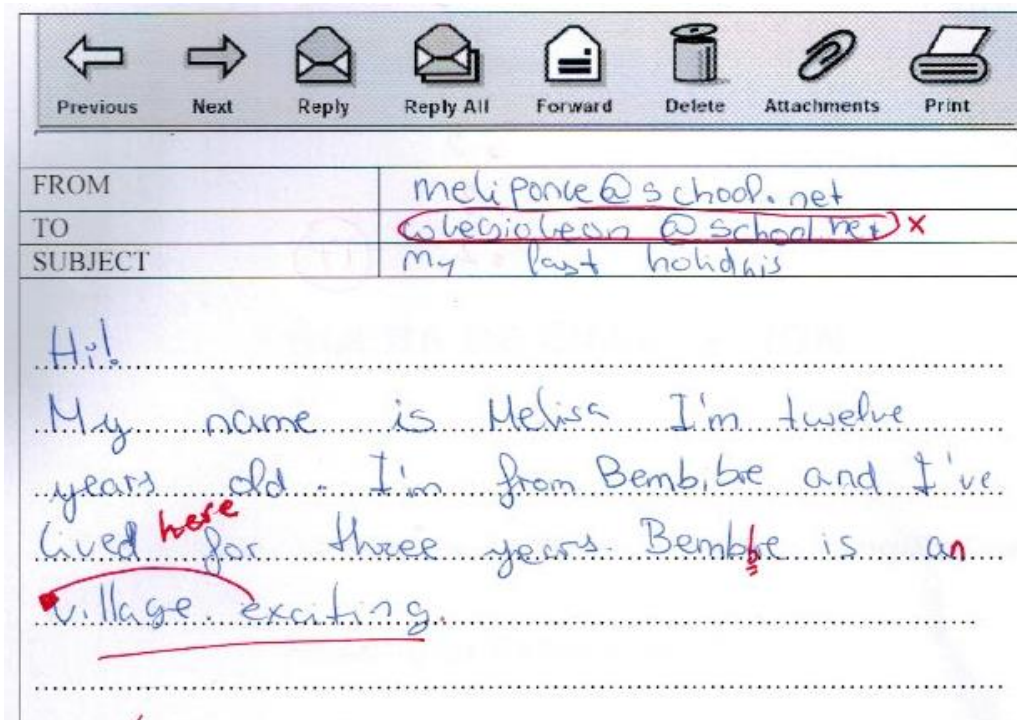 Previous Next Reply Reply All Forward Delete Attachments Print
FROM meliponce@school.net
TO @school.net x
SUBJECT My last holidais
Hi!
My name is Melisa I'm twelve
years old. I'm from Bembibre and I've
lived here for three years. Bembbre is an
village exciting.